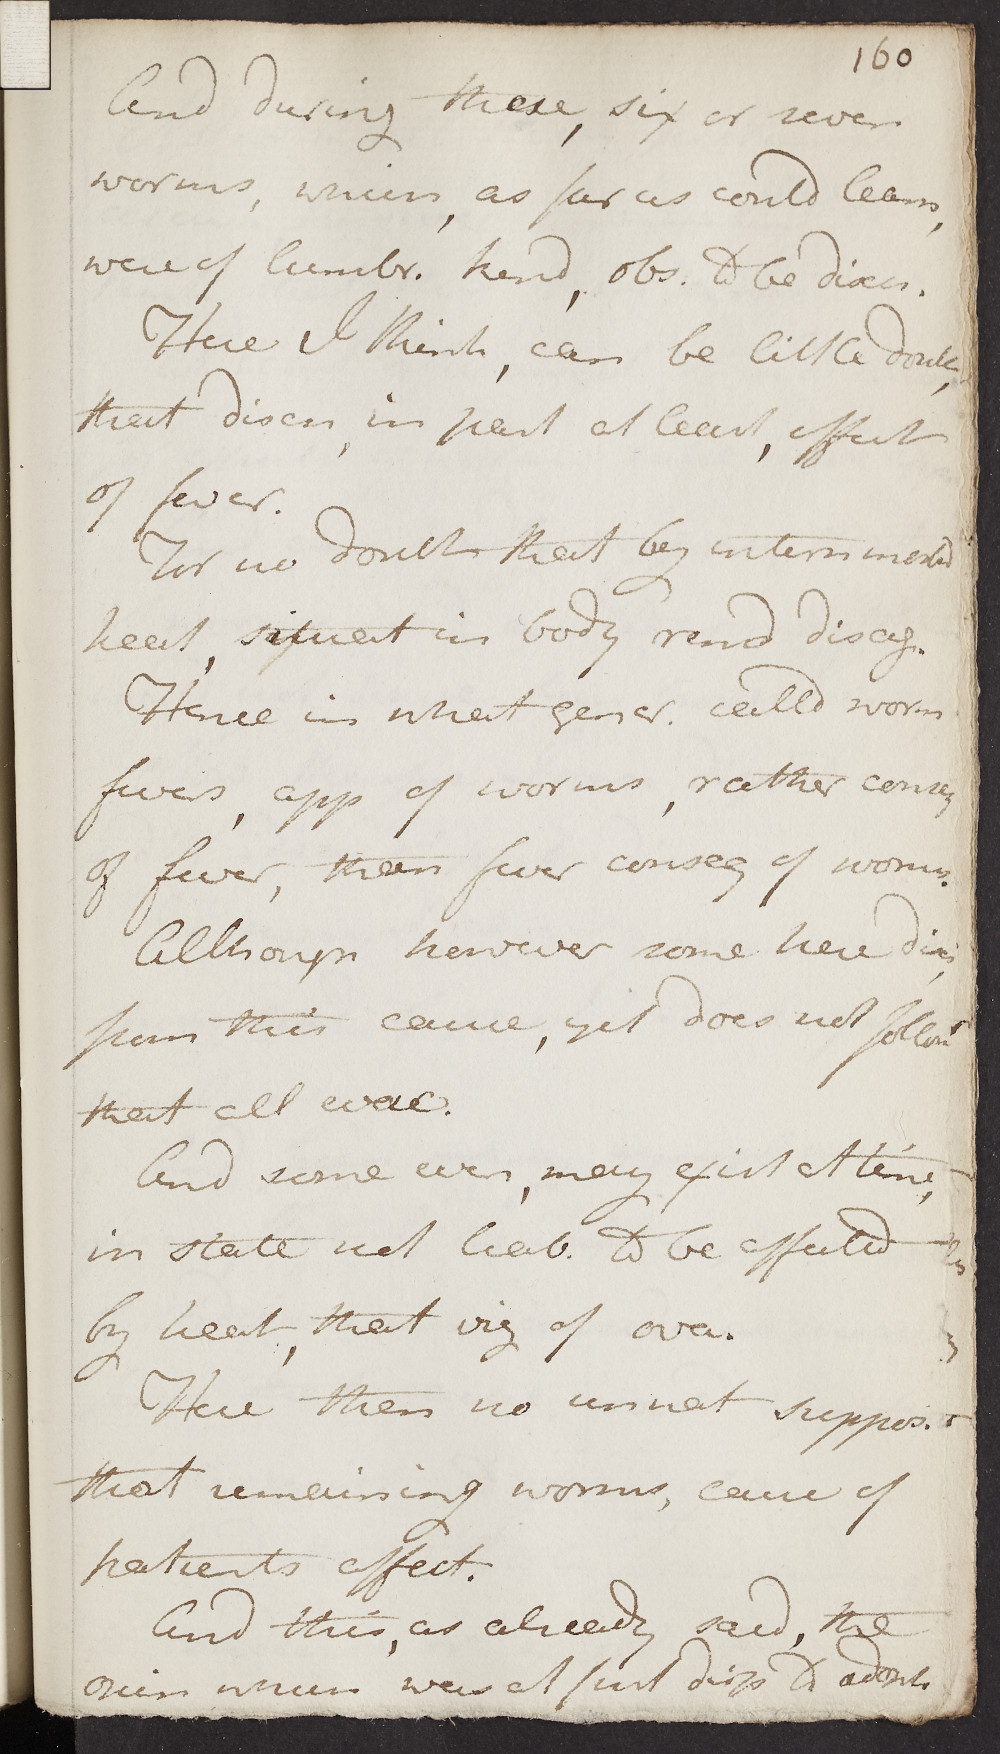 160
And during these, six or seven
worms, which, as far as could learn,
were of lumbr. kind, obs. to be disch.
Here I think, can be little doubt,
that disch, in part at least, effect
of fever.
For no doubt that by intern morbid
heat, situat in body rend disag.
Hence in what gener. calld worm
fevers, app of worms, rather conseq
of fever, than fever conseq of worms.
Although however some here dis,
from this cause, yet does not follow
that all were.
And some even, may exist at time,
in state not liab. to be affected
by heat, that viz of ova.
Here then no unnat suppos.
that remaining worms, cause of
patients affect.
And this, as already said, the
opin which was at first disp to adopt